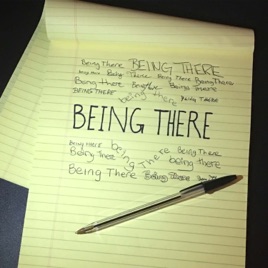 Being There BEING THERE
Being There Being There Being There Being There
Being There Being There Being There
BEING THERE being there Being There
BEING THERE
Being there being There Being There
Being There being there
Being There Being There